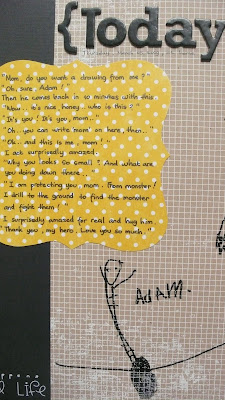 {Today
"Mom, do you want a drawing from me?"
"Oh, sure, Adam!"
Then he comes back in 10 minutes with this.
"Wow.. it's nice, honey.. who is this?"
"It's you! It's you, mom.."
"Oh.. you can write mom on here, then."
"Ok.. and this is me, mom!"
I act surprisedly amazed.
"Why you looks so small? And what are
you doing down there..."
"I am protecting you, mom. From monster!
I drill to the ground to find the monster
and fight them!"
I surprisedly amazed for real and hug him.
"Thank you, my hero. Love you so much.."
ADAM.
Life